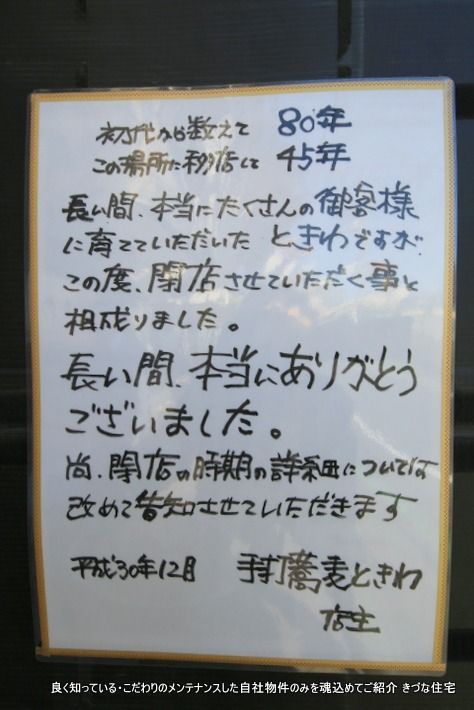 初代から数えて 80年
この場所に移店して 45年
長い間、本当にたくさんの御客様
に育てていただいた ときわですが
この度、閉店させていただく事と
相成りました。
長い間、本当にありがとう
ございました。
尚、閉店の時期の詳細については
改めて告知させていただきます
平成30年12月 手打蕎麦ときわ
店主
良く知っている・こだわりのメンテナンスした自社物件のみを魂込めてご紹介 きづな住宅